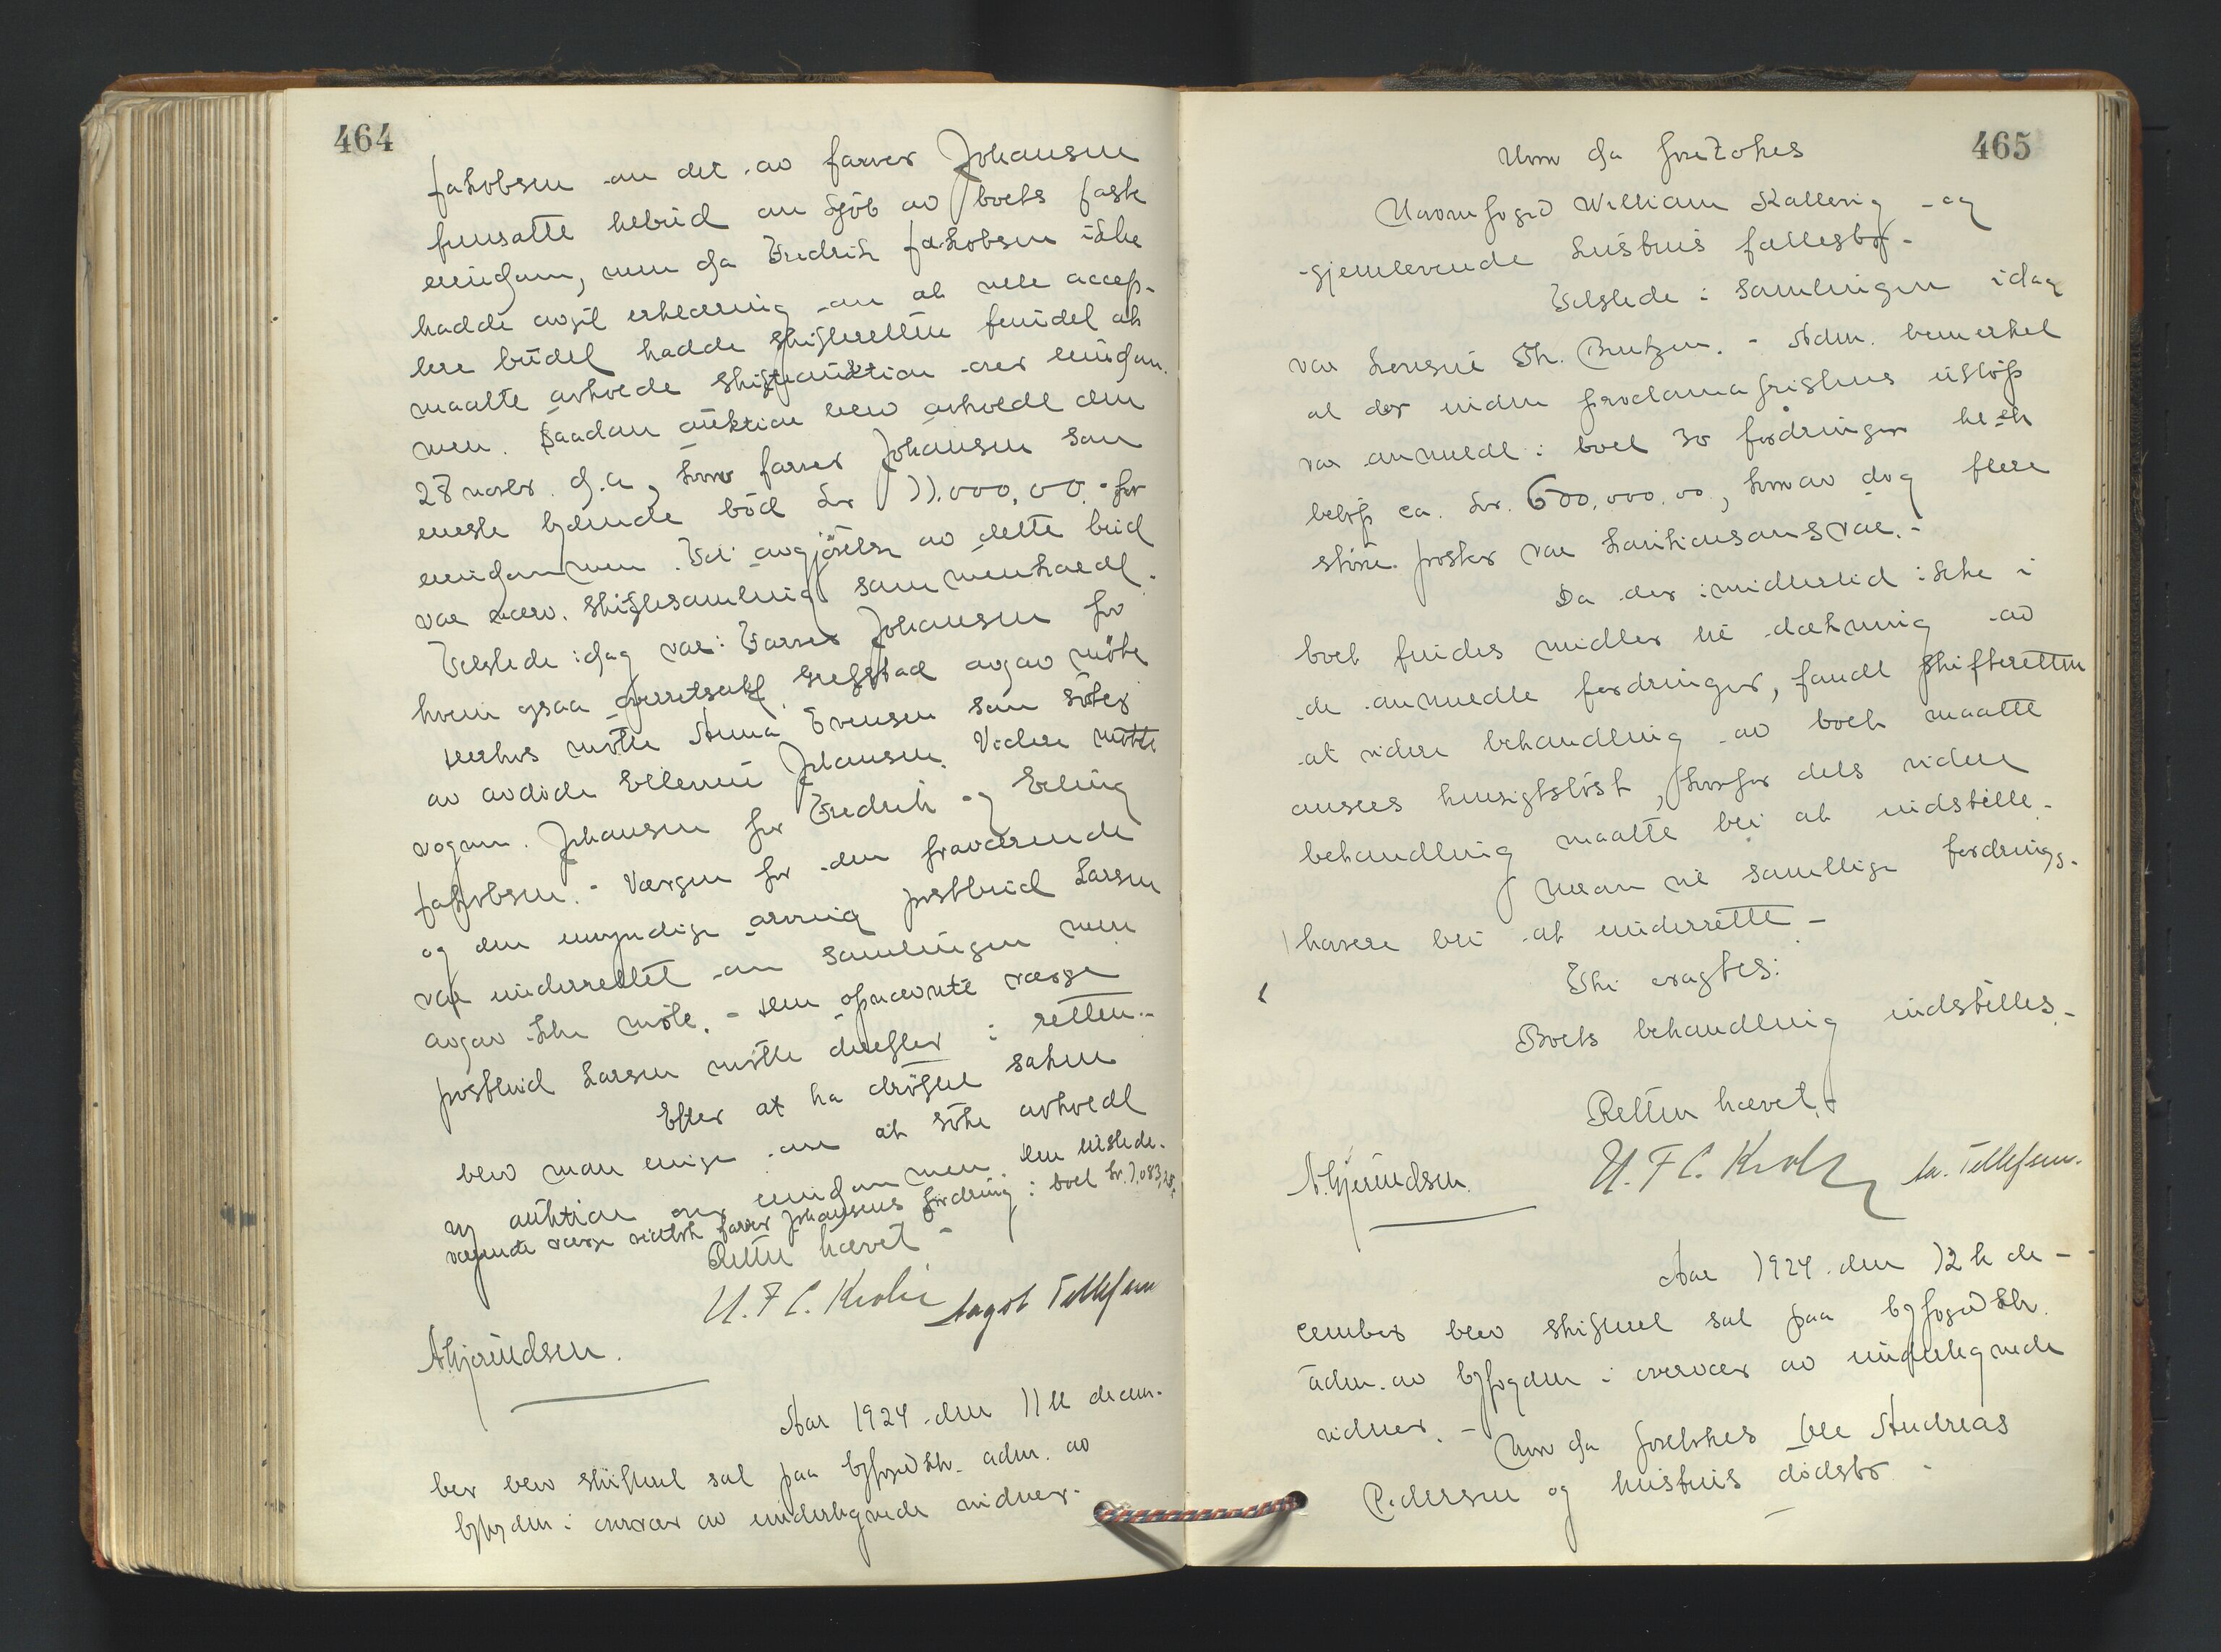 464
Jakobsen om det av farver Johansen
fremsatte tilbud om kjøb av boets faste
eiendom, men da Fredrik Jakobsen ikke
hadde avgit erklæring om at ville accep-
tere budet hadde skifteretten fundet at
maatte avholde skifteauktion over eiendom-
men. Saadan auktion blev avholdt den
28 novbr. d.a., hvor farver Johansen som
eneste bydende bød kr 11.000,00 for
eiendommen. Til avgjørelse av dette bud
var nærv. skiftesamling sammenkaldt.
Tilstede idag var: Farver Johansen for
hvem ogsaa overretssakf. Grefstad avgav møte
Derhos møtte Anna Evensen som søster
av avdøde Ellevine Johansen. Videre møtte
vognm. Johansen for Fredrik og Erling
Jakobsen. - Værgen for den fraværende
og den umyndige arving postbud Larsen
var underrettet om samlingen men
avgav ikke møte. - Den opnævnte værge
postbud Larsen møtte derefter i retten.-
Efter at ha drøftet saken
blev man enige om at søke avholdt
ny auktion over eiendommen. Den tilstede-
værende værge vedtok farver Johansens fordring i boet kr. 1.083,28.
Retten hævet -
U. F C. Krohn Aagot Tellefsen
A. Gjerundsen.
Aar 1924 den 11te decem-
ber blev skifteret sat paa byfogedktr. adm. av
byfogden i overvær av undertegnede vidner.
465
Hvor da foretokes
Havnefoged William Kallevig - og
gjenlevende hustrus fællesbo -
Tilstede i samlingen idag
var konsul Th. Bentzen. - Adm. bemerket
at der inden proclamafristens utløp
var anmeldt i boet 30 fordringer til et
beløp ca. kr. 600.000.00, hvorav dog flere
store poster var kautionsansvar.-
Da der imidlertid ikke i
boet findes midler til dækning av
de anmeldte fordringer, fandt skifteretten
at videre behandling av boet maatte
ansees hensigtsløst, hvorfor dets videre
behandling maatte bli at indstille -
Herom vil samtlige fordrings-
havere bli at underrette -
Thi eragtes:
Boets behandling indstilles.-
Retten hævet.-
A. Gjerundsen. U. F C. Krohn Aa. Tellefsen.
Aar 1924 den 12te de-
cember blev skifteret sat paa byfogedktr.
adm. av byfogden i overvær av undertegnede
vidner. -
Hvor da foretokes Ole Andreas
Pedersen og hustrus dødsbo -